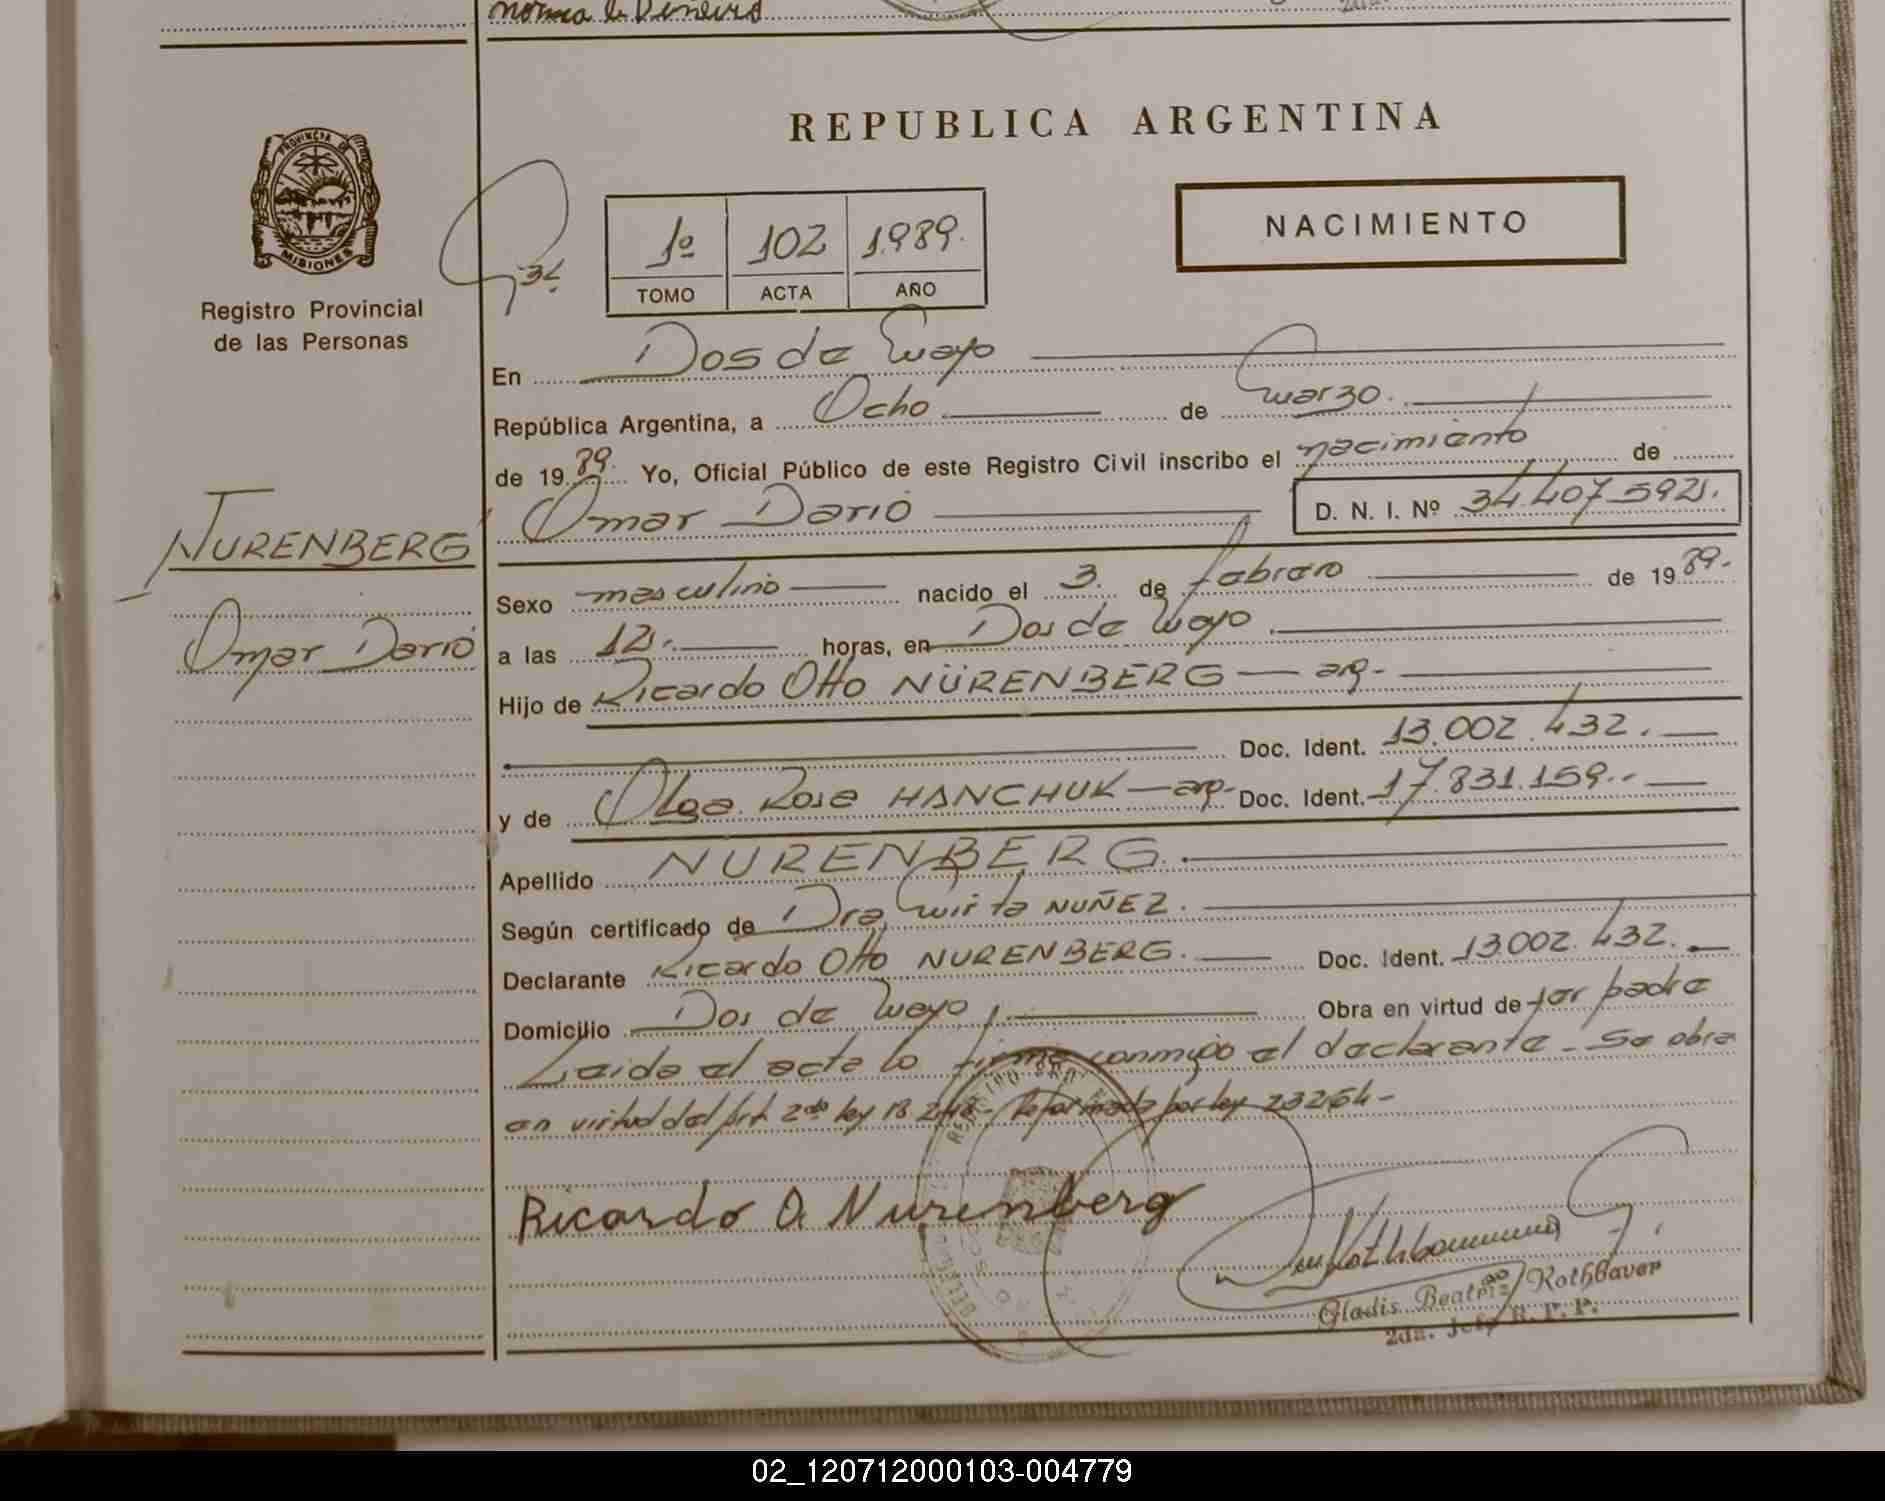 PROVINCIA DE
MISIONES
Registro Provincial
de las Personas
NURENBERG
Omar Dario
REPUBLICA ARGENTINA
1º 102 1989.
TOMO ACTA AÑO
NACIMIENTO
En Dos de Mayo
República Argentina, a Ocho de marzo.
de 1989. Yo, Oficial Público de este Registro Civil inscribo el nacimiento de
Omar Dario D. N. I. Nº 34.407.592.
Sexo masculino nacido el 3. de febrero de 1989.
a las 12. horas, en Dos de Mayo
Hijo de Ricardo Otto NÜRENBERG — arg.
Doc. Ident. 13.002.432.
y de Olga Rosa HANCHUK — arg. Doc. Ident. 17.831.159.
Apellido NURENBERG.
Según certificado de Dra. Mirta NUÑEZ.
Declarante Ricardo Otto NURENBERG. Doc. Ident. 13.002.432.
Domicilio Dos de Mayo Obra en virtud de ser padre
Leida el acta lo firma conmigo el declarante - Se obra
en virtud del Art. 2do ley 18.248 - Reformada por ley 23264 -
Ricardo O. Nurenberg
Gladis Beatriz Rothbaver
2da. Jefe R. P. P.
02_120712000103-004779